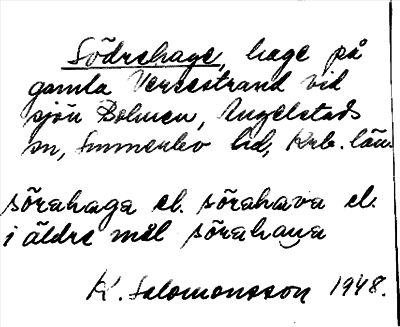 Södrehage, hage på
gamla Versestrand vid
sjön Bolmen, Angelstads
sn, Sunnerbo hd, Krb. län.
sörahaga el. sörahava el.
i äldre mål sörahaua
K. Salomonsson 1948.